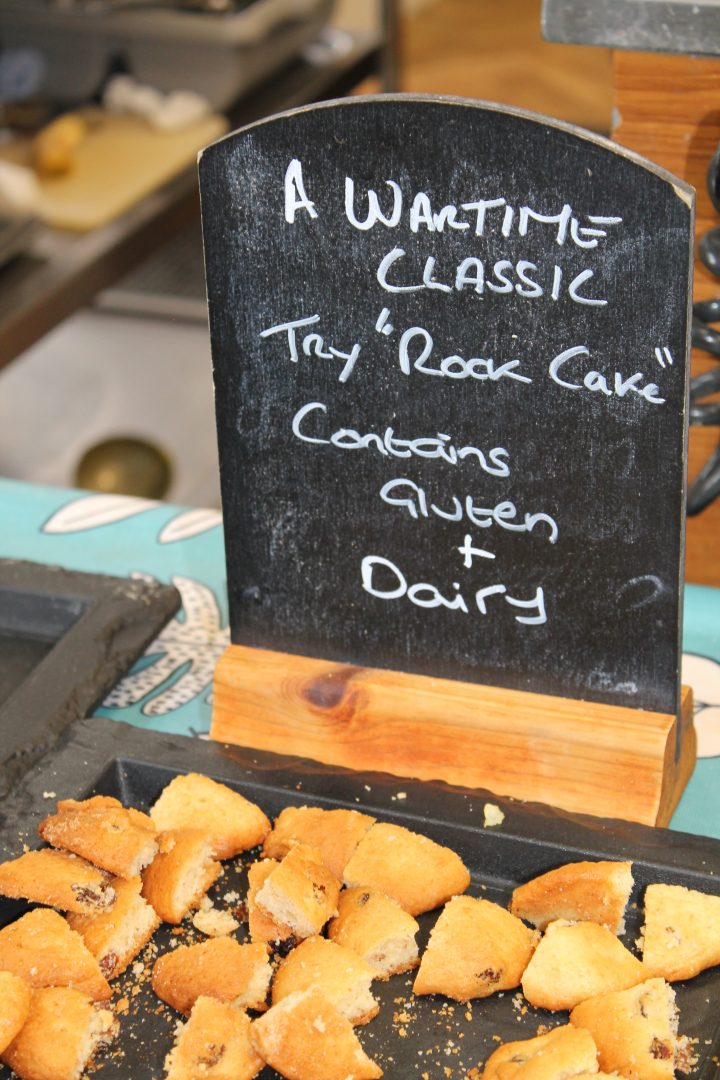 A WARTIME
CLASSIC
Try "Rock Cake"
Contains
Gluten
+
Dairy